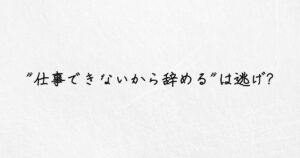 "仕事できないから辞める"は逃げ?